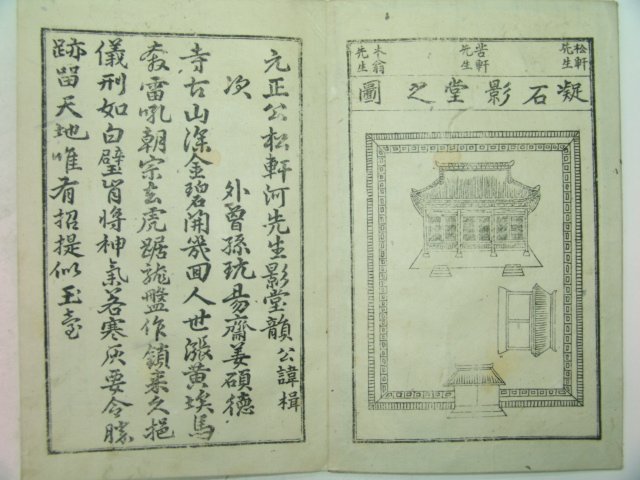 松軒先生
苦軒先生
木翁先生
凝石影堂之圖
元正公松軒河先生影堂韻 公諱楫
次 外曾孫玩易齋姜碩德
寺古山深金碧開幾回人世漲黃埃馬
奔雷吼朝宗去虎踞龍盤作鎭來久挹
儀刑如白璧肖將神氣若寒灰要令勝
跡留天地唯有招提似玉臺